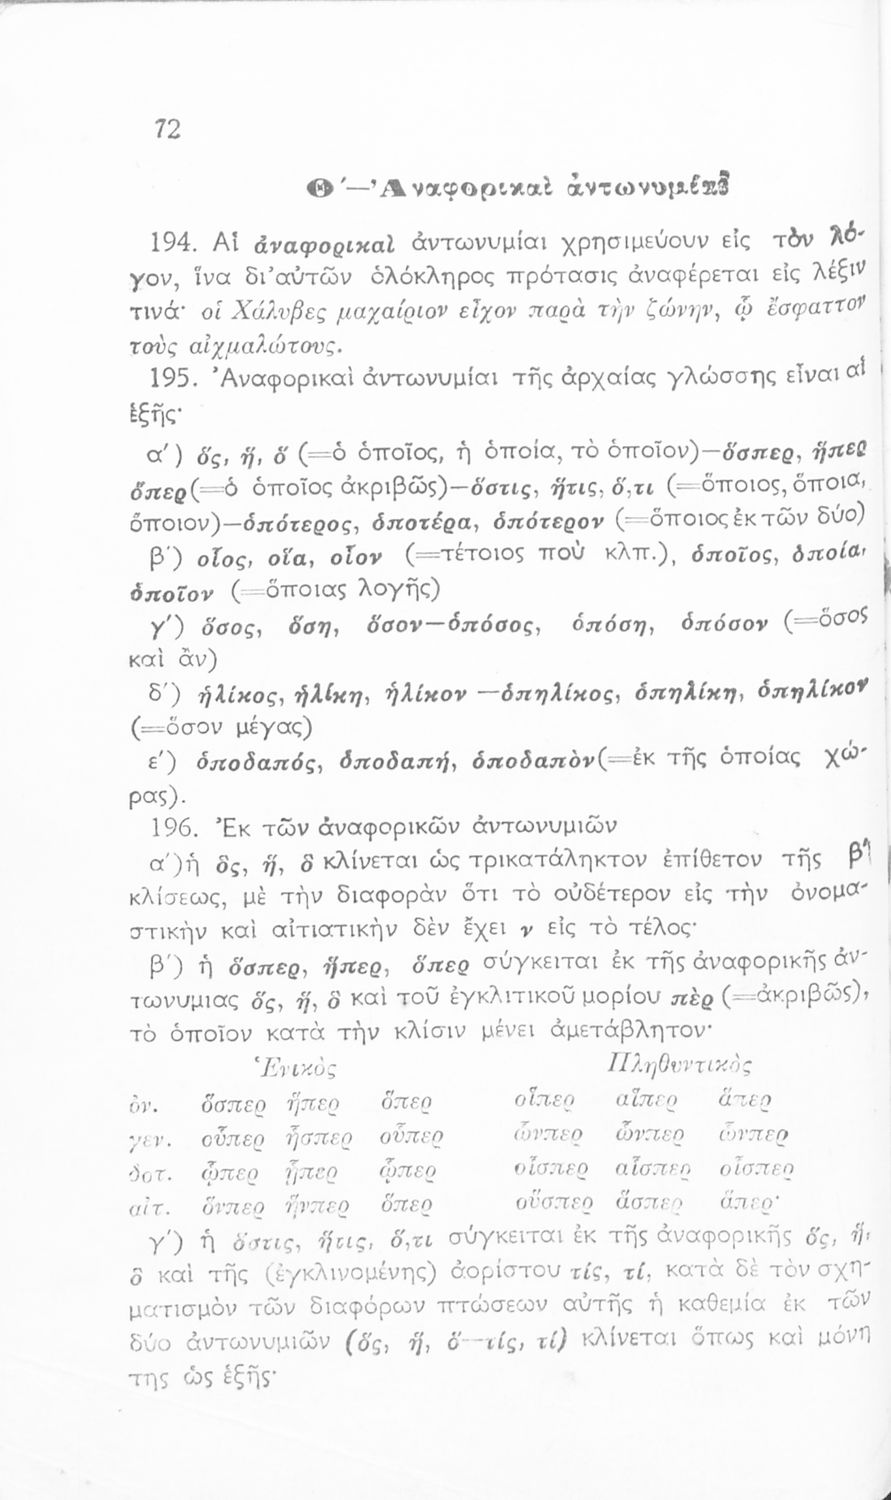 72
Θ΄—᾿Αναφορικαὶ ἀντωνυμίαι
194. Αἱ ἀναφορικαὶ ἀντωνυμίαι χρησιμεύουν εἰς τὸν λό-
γον, ἵνα δι᾿αὐτῶν ὁλόκληρος πρότασις ἀναφέρεται εἰς λέξιν
τινά· οἱ Χάλυβες μαχαίριον εἶχον παρὰ τὴν ζώνην, ᾧ ἔσφαττον
τοὺς αἰχμαλώτους.
195. ᾿Αναφορικαὶ ἀντωνυμίαι τῆς ἀρχαίας γλώσσης εἶναι αἱ
ἑξῆς·
α΄) ὅς, ἥ, ὅ (=ὁ ὁποῖος, ἡ ὁποία, τὸ ὁποῖον)—ὅσπερ, ἥπερ
ὅπερ(=ὁ ὁποῖος ἀκριβῶς)—ὅστις, ἥτις, ὅ,τι (=ὅποιος, ὅποια,
ὅποιον)—ὁπότερος, ὁποτέρα, ὁπότερον (=ὅποιος ἐκ τῶν δύο)
β΄) οἷος, οἵα, οἷον (=τέτοιος ποὺ κλπ.), ὁποῖος, ὁποία,
ὁποῖον (=ὅποιας λογῆς)
γ΄) ὅσος, ὅση, ὅσον—ὁπόσος, ὁπόση, ὁπόσον (=ὅσος
καὶ ἂν)
δ΄) ἡλίκος, ἡλίκη, ἡλίκον —ὁπηλίκος, ὁπηλίκη, ὁπηλίκον
(=ὅσον μέγας)
ε΄) ὁποδαπός, ὁποδαπή, ὁποδαπὸν(=ἐκ τῆς ὁποίας χώ-
ρας).
196. ᾿Εκ τῶν ἀναφορικῶν ἀντωνυμιῶν
α΄)ἡ ὅς, ἥ, ὅ κλίνεται ὡς τρικατάληκτον ἐπίθετον τῆς β΄
κλίσεως, μὲ τὴν διαφορὰν ὅτι τὸ οὐδέτερον εἰς τὴν ὀνομα-
στικὴν καὶ αἰτιατικὴν δὲν ἔχει ν εἰς τὸ τέλος·
β΄) ἡ ὅσπερ, ἥπερ, ὅπερ σύγκειται ἐκ τῆς ἀναφορικῆς ἀν-
τωνυμιας ὅς, ἥ, ὃ καὶ τοῦ ἐγκλιτικοῦ μορίου πὲρ (=ἀκριβῶς),
τὸ ὁποῖον κατὰ τὴν κλίσιν μένει ἀμετάβλητον·
῾Ενικὸς Πληθυντικὸς
ὀν. ὅσπερ ἥπερ ὅπερ οἵπερ αἵπερ ἅπερ
γεν. οὗπερ ἧσπερ οὗπερ ὧνπερ ὧνπερ ὧνπερ
δοτ. ᾧπερ ᾗπερ ᾧπερ οἷσπερ αἷσπερ οἷσπερ
αἰτ. ὅνπερ ἥνπερ ὅπερ οὕσπερ ἅσπερ ἅπερ·
γ΄) ἡ ὅστις, ἥτις, ὅ,τι σύγκειται ἐκ τῆς ἀναφορικῆς ὅς, ἥ,
ὃ καὶ τῆς (ἐγκλινομένης) ἀορίστου τίς, τί, κατὰ δὲ τὸν σχη-
ματισμὸν τῶν διαφόρων πτώσεων αὐτῆς ἡ καθεμία ἐκ τῶν
δύο ἀντωνυμιῶν (ὅς, ἥ, ὅ—τίς, τί) κλίνεται ὅπως καὶ μόνη
της ὡς ἑξῆς·